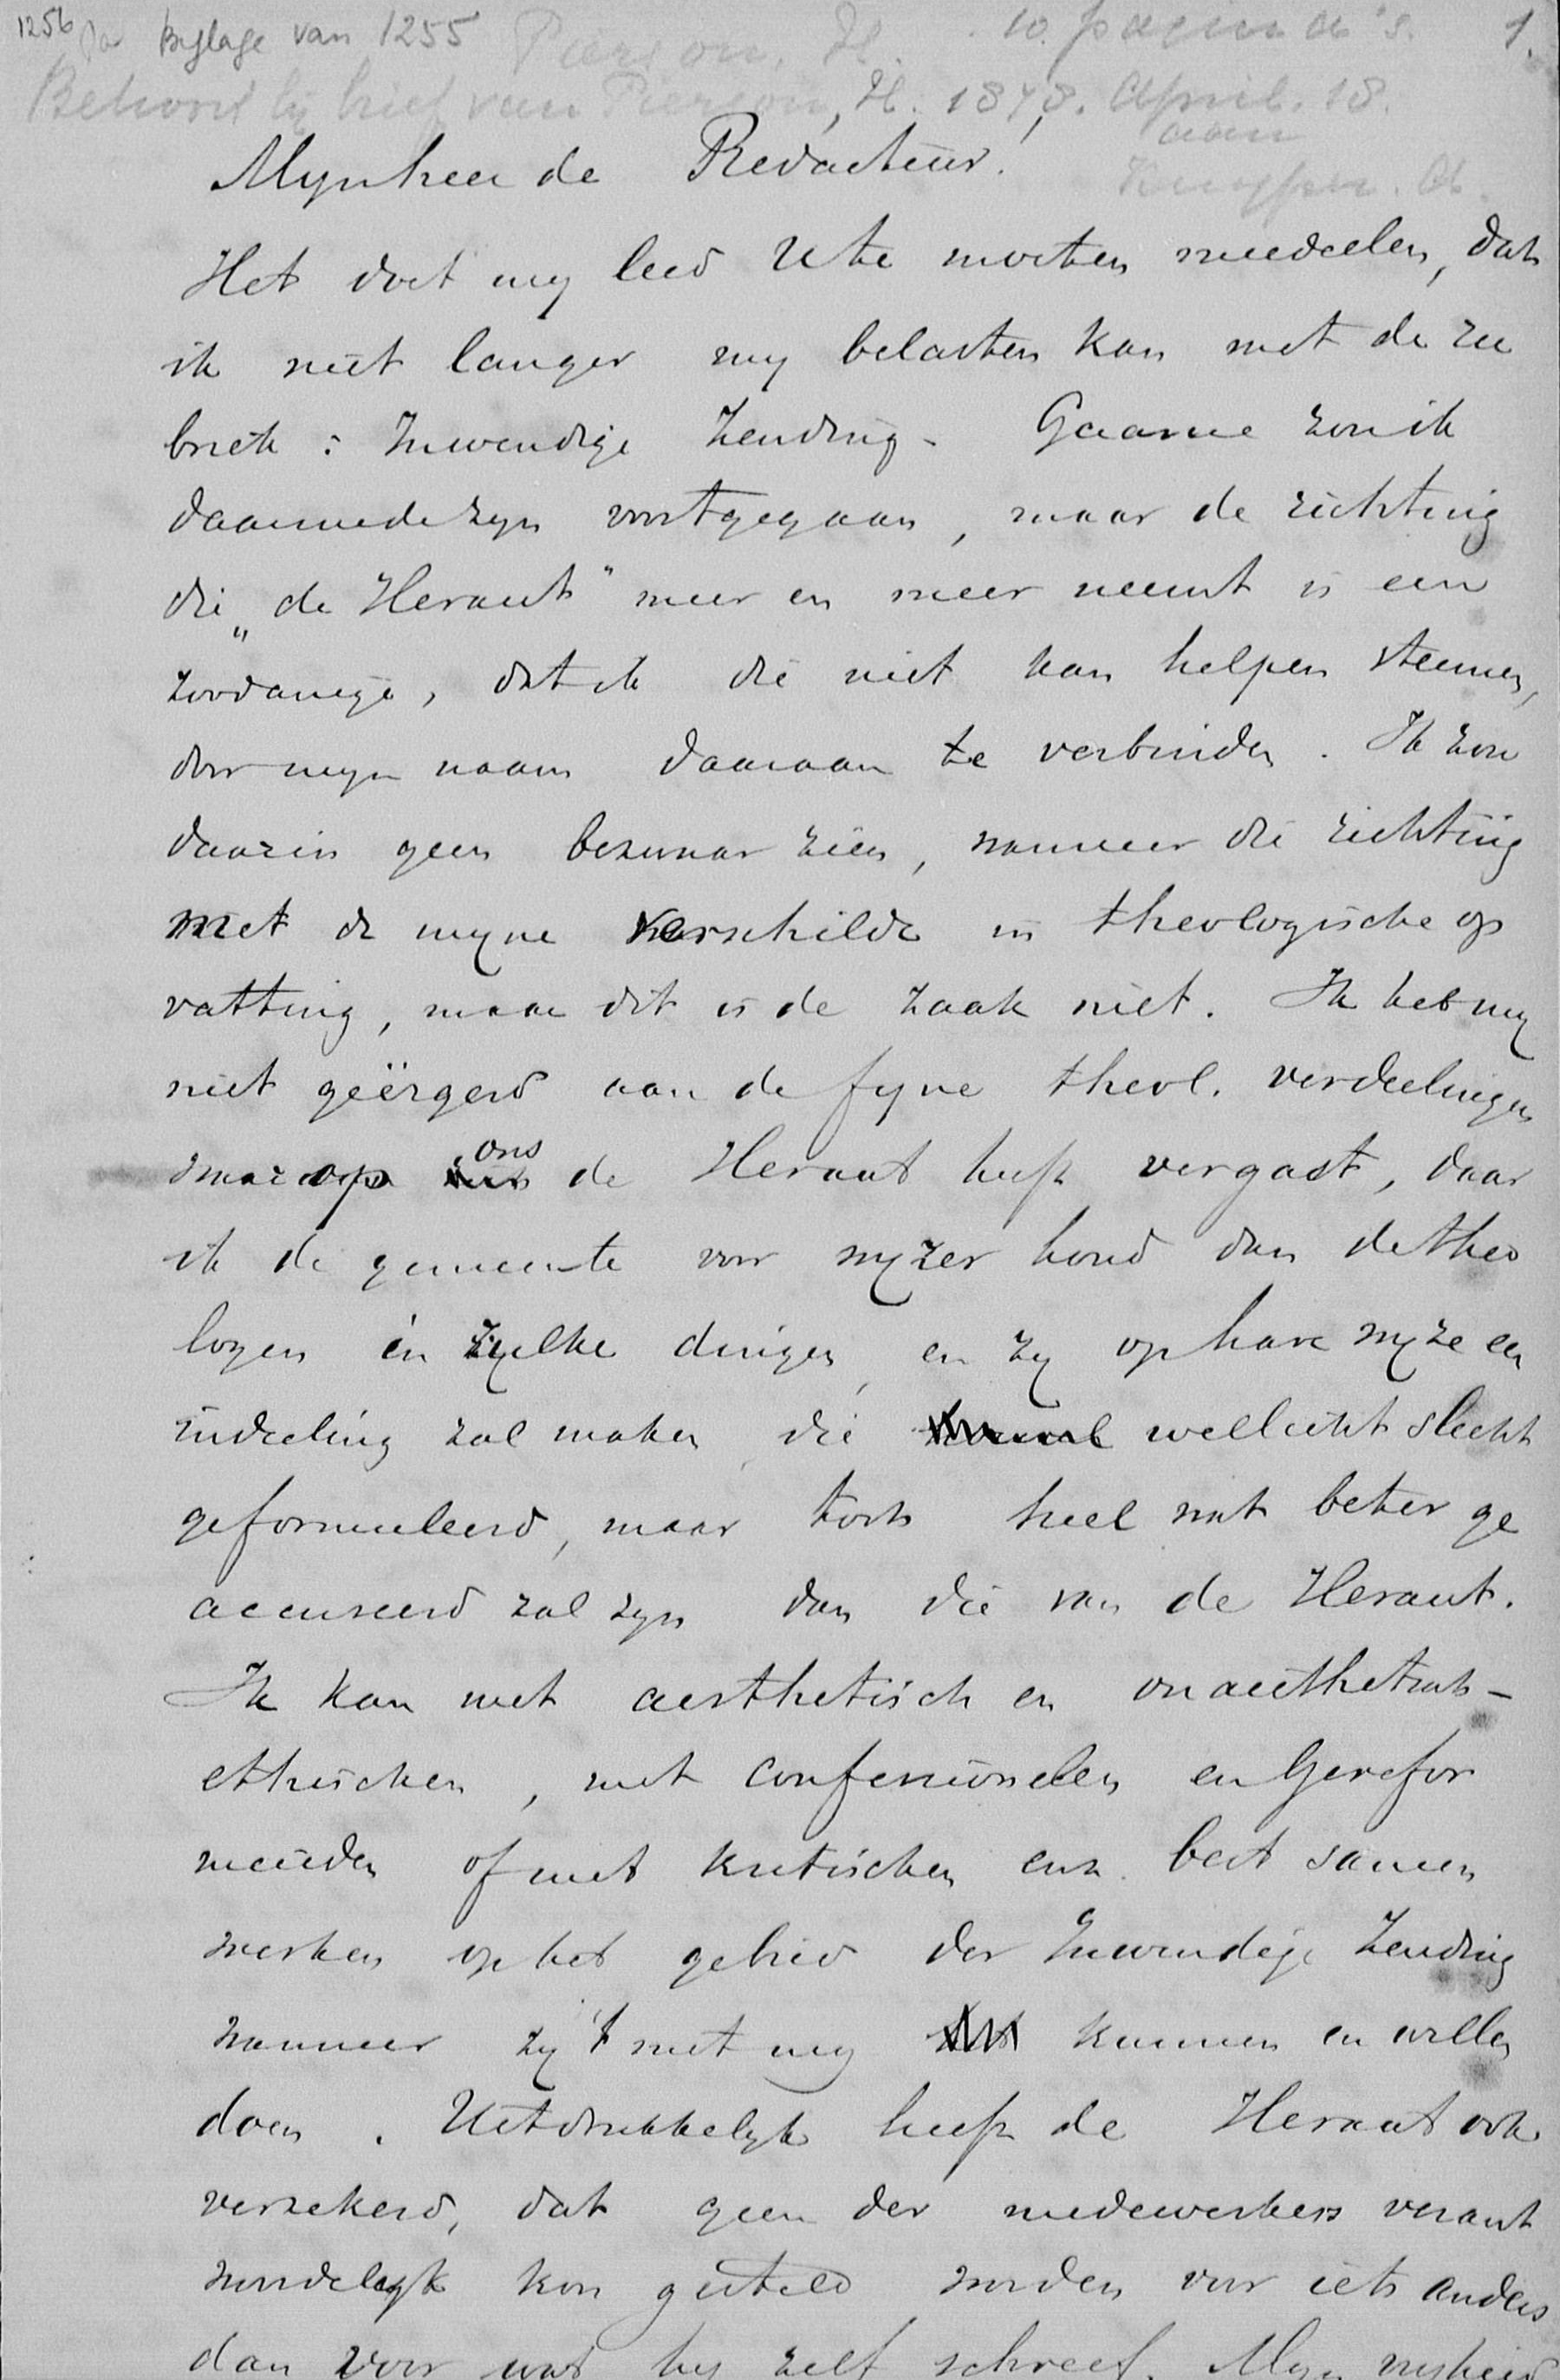 1256 Bijlage van 1255 Pierson, H. 10 pagina's. 1.
Behoort bij brief van Pierson, H. 1878. April. 18.
aan
Kuyper. A.
Mynheer de Redacteur!
Het doet my leed U te moeten meedeelen, dat
ik niet langer my belasten kan met de ru
briek: Inwendige Zending. Gaarne zou ik
daarmede zyn voortgegaan, maar de richting
die „de Heraut" meer en meer neemt is een
zoodanige, dat ik die niet kan helpen steunen,
door myn naam daaraan te verbinden. Ik zou
daarin geen bezwaar zien, wanneer die richting
met de myne verschilde in theologische op
vatting, maar dit is de zaak niet. Ik heb my
niet geërgerd aan de fyne theol. verdeelingen
waarop ons de Heraut heeft vergast, daar
ik de gemeente voor wyzer houd dan de theo
logen in zulke dingen, en zy op hare wyze een
indeeling zal maken, die wellicht slecht
geformuleerd, maar toch heel wat beter ge
accuseerd zal zyn dan die van de Heraut.
Ik kan met aesthetisch en onaesthetisch-
ethischen, met confessioneelen en Gerefor
meerden of met kritischen enz. best samen
werken op het gebied der Inwendige Zending
wanneer zy 't met my kunnen en willen
doen. Uitdrukkelyk heeft de Heraut ook
verzekerd, dat geen der medewerkers verant
woordelyk kon gesteld worden voor iets anders
dan voor wat hy zelf schreef. Myn vryheid